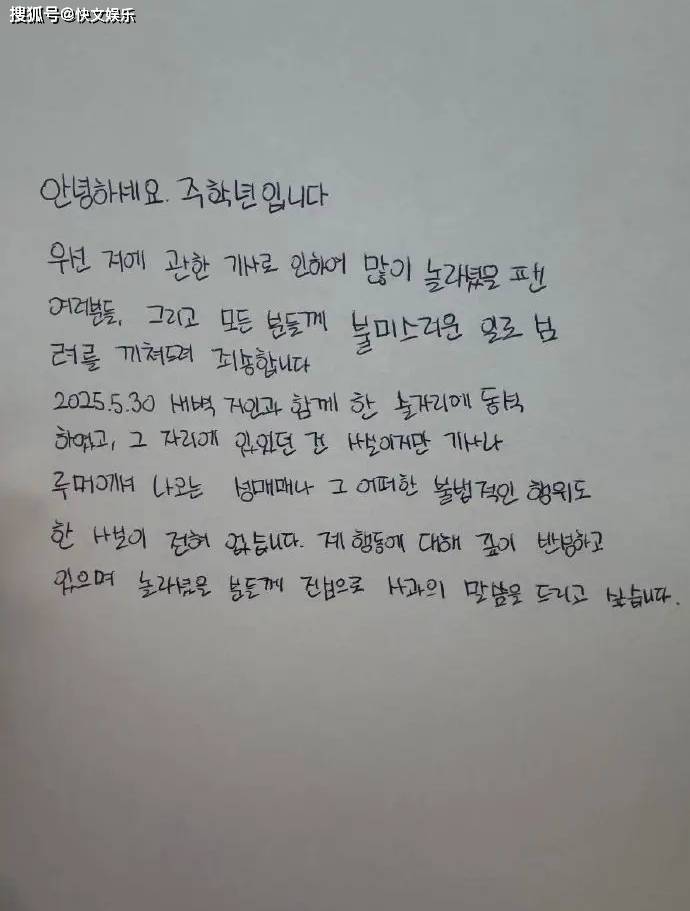 搜狐号@快文娱乐
안녕하세요. 주학년입니다
우선 저에 관한 기사로 인하여 많이 놀라셨을 팬
여러분들, 그리고 모든 분들께 불미스러운 일로 심
려를 끼쳐드려 죄송합니다
2025.5.30 새벽 지인과 함께 한 술자리에 동석
하였고, 그 자리에 있었던 건 사실이지만 기사나
루머에서 나오는 성매매나 그 어떠한 불법적인 행위도
한 사실이 전혀 없습니다. 제 행동에 대해 깊이 반성하고
있으며 놀라셨을 분들께 진심으로 사과의 말씀을 드리고 싶습니다.